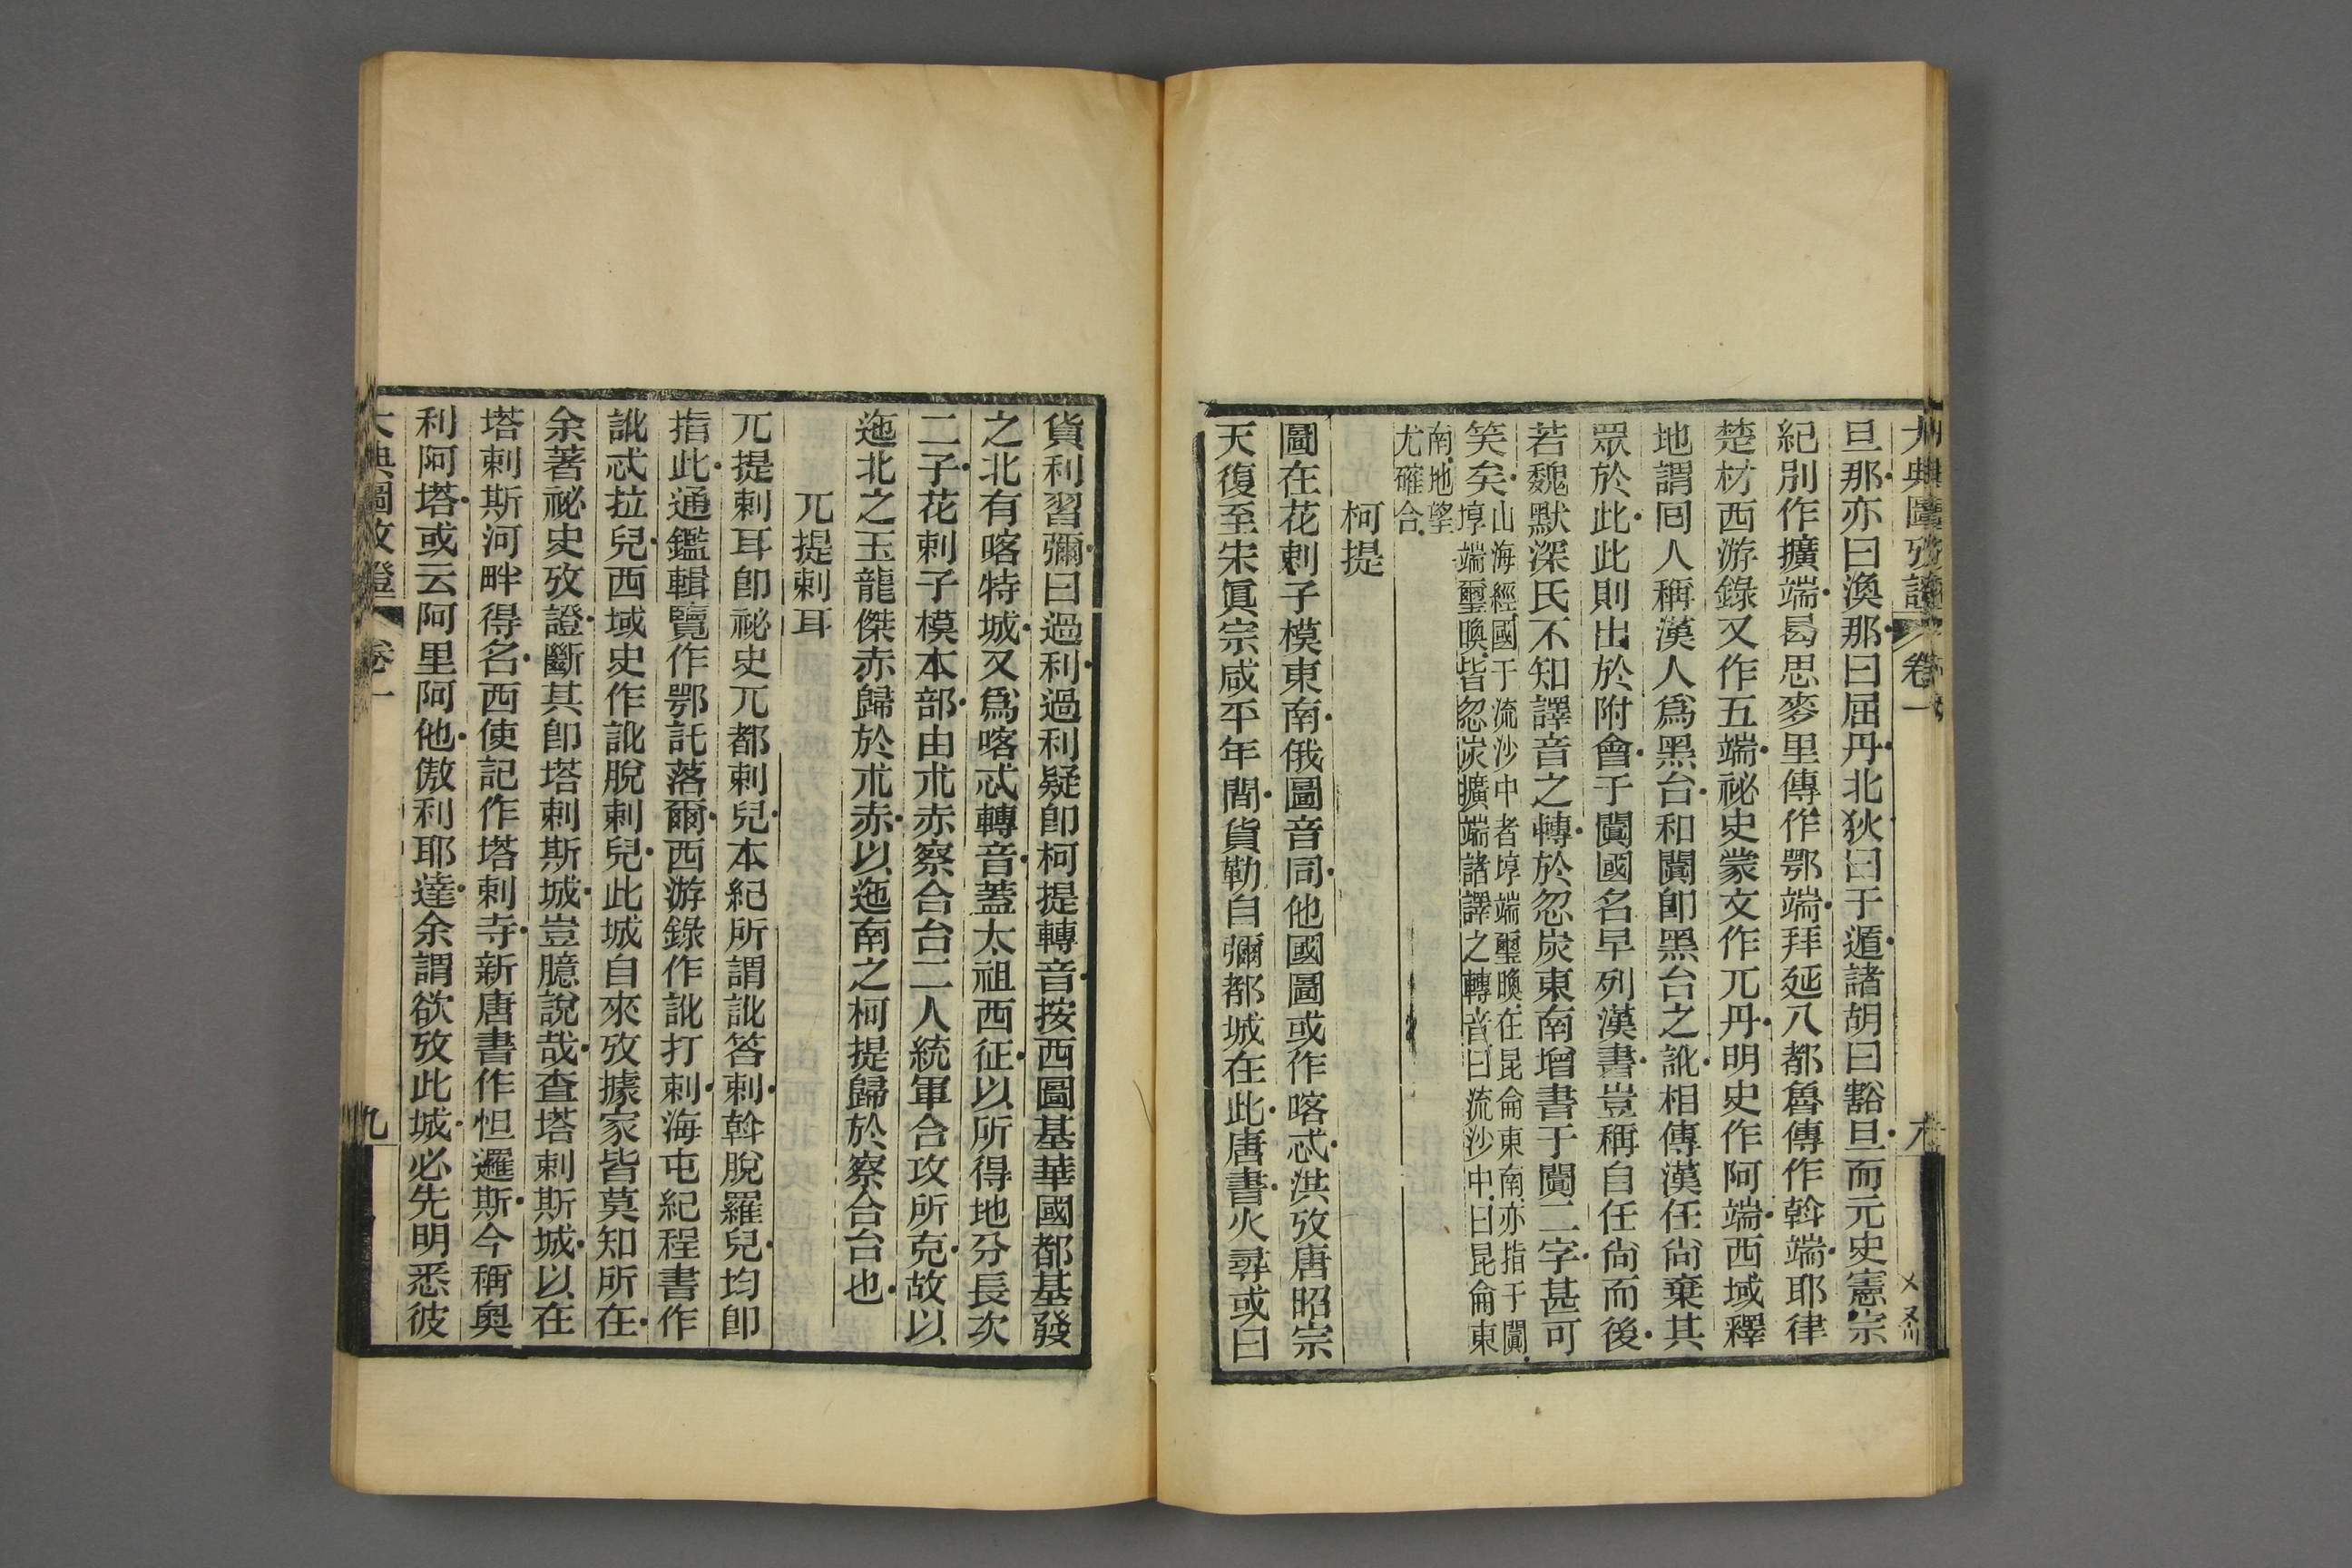 大典圖攷證 卷一
旦那亦曰渙那曰屈丹北狄曰于遁諸胡曰豁旦而元史憲宗
紀別作擴端曷思麥里傳作鄂端拜延八都魯傳作斡端耶律
楚材西游錄又作五端祕史蒙文作兀丹明史作阿端西域釋
地謂回人稱漢人爲黑台和闐卽黑台之訛相傳漢任尙棄其
眾於此此則出於附會于闐國名早列漢書豈稱自任尙而後
若魏默深氏不知譯音之轉於忽炭東南增書于闐二字甚可
笑矣山海經國于流沙中者埻端璽㬇在昆侖東南亦指于闐
埻端璽㬇皆忽炭擴端諸譯之轉音曰流沙中曰昆侖東
南地望
尤確合
柯提
圖在花剌子模東南俄圖音同他國圖或作喀忒洪攷唐昭宗
天復至宋眞宗咸平年間貨勒自彌都城在此唐書火尋或曰
貨利習彌曰過利過利疑卽柯提轉音按西圖基華國都基發
之北有喀特城又爲喀忒轉音蓋太祖西征以所得地分長次
二子花剌子模本部由朮赤察合台二人統軍合攻所克故以
迤北之玉龍傑赤歸於朮赤以迤南之柯提歸於察合台也
兀提剌耳
兀提剌耳卽祕史兀都剌兒本紀所謂訛答剌斡脫羅兒均卽
指此通鑑輯覽作鄂託落爾西游錄作訛打剌海屯紀程書作
訛忒拉兒西域史作訛脫剌兒此城自來攷據家皆莫知所在
余著祕史攷證斷其卽塔剌斯城豈臆說哉查塔剌斯城以在
塔剌斯河畔得名西使記作塔剌寺新唐書作怛邏斯今稱奧
利阿塔或云阿里阿他傲利耶達余謂欲攷此城必先明悉彼
大典圖攷證 卷一 九